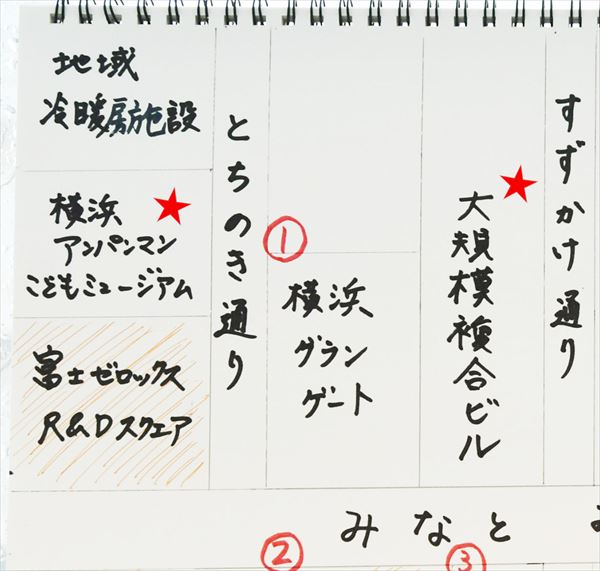 地域
冷暖房施設
横浜
アンパンマン
こどもミュージアム
富士ゼロックス
R&Dスクエア
とちのき通り
①
横浜
グラン
ゲート
大規模複合ビル
すずかけ通り
みなと
②
③